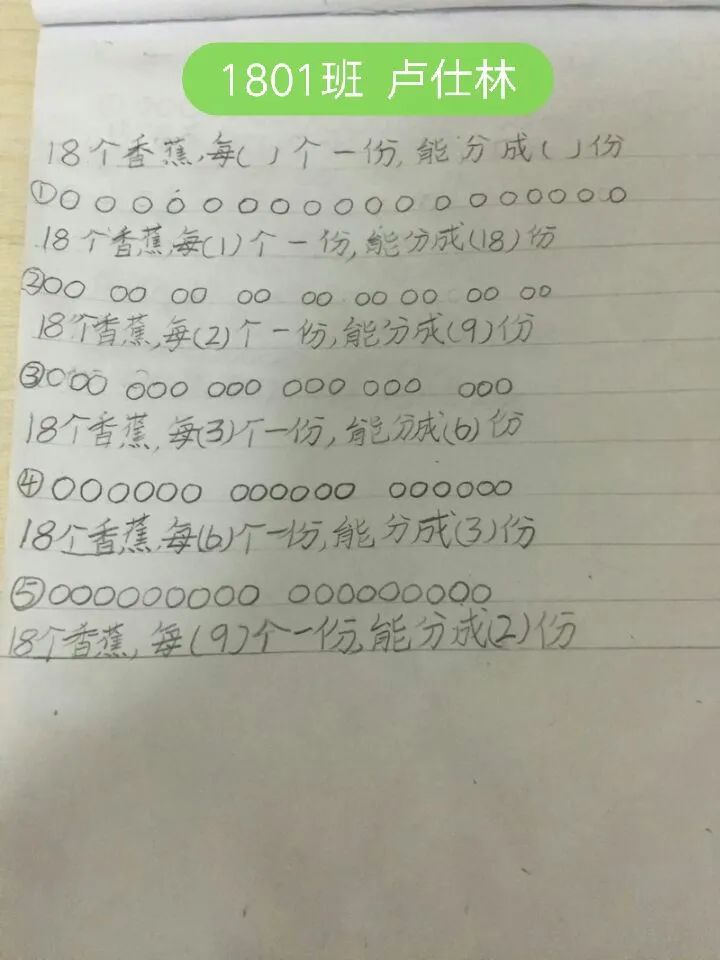 1801班 卢仕林
18个香蕉,每( )个一份,能分成( )份
①
18个香蕉,每(1)个一份,能分成(18)份
②
18个香蕉,每(2)个一份,能分成(9)份
③
18个香蕉,每(3)个一份,能分成(6)份
④
18个香蕉,每(6)个一份,能分成(3)份
⑤
18个香蕉,每(9)个一份,能分成(2)份